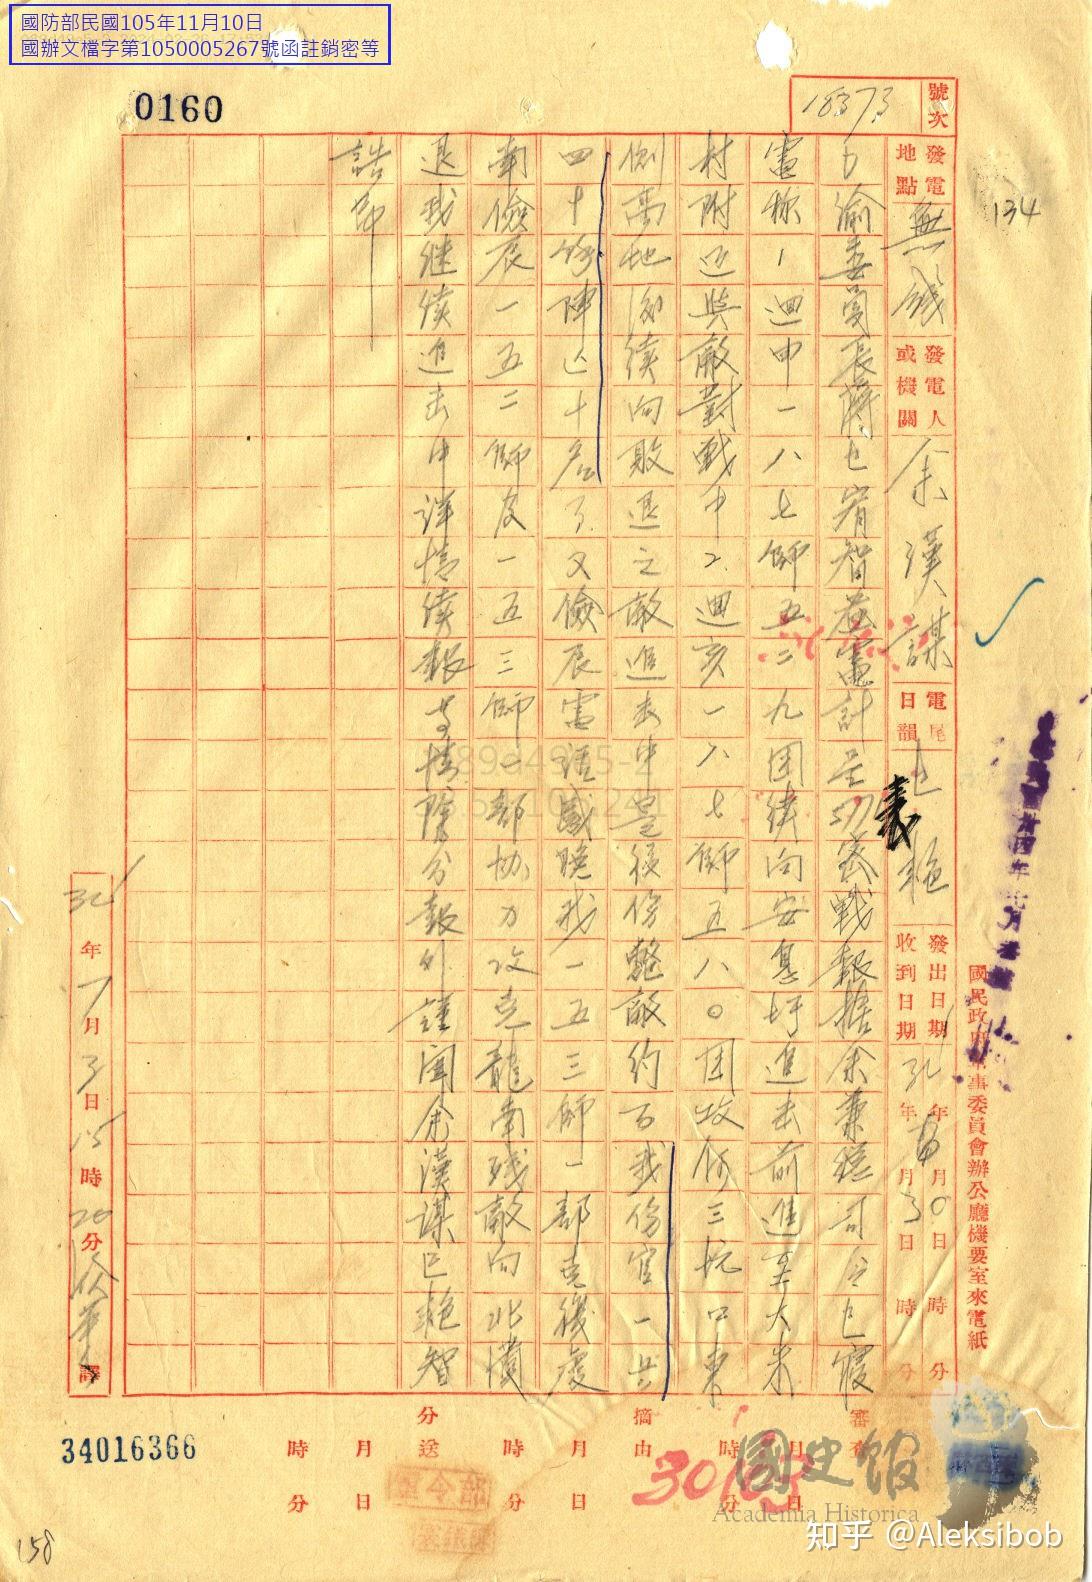 國防部民國105年11月10日
國辦文檔字第1050005267號函註銷密等
0160
號次
18373
134
發電地點
無錢
發電人或機關
余漢謀
電尾日韻
巳艳
發出日期
年月日時分
收到日期
34年7月3日時分
國民政府軍事委員會辦公廳機要室來電紙
渝委員長蔣巳宥智電計呈密戰報據余兼總司令巳寢
電称1迴申一八七師五二九团續向安息坪進击前進至大米
村附近與敵對戰中2迴亥一八七師五八〇团收何三坑口東
側高地後續向敗退之敵進击中是役伤斃敵約百我伤官一兵
四十餘陣亡十名了又儉辰電話感晚我一五三師一部克後虔
南儉辰一五二師及一五三師一部协力攻克龍南殘敵向北潰
退我继续追击中详情续报等情除分報外謹聞余漢謀巳艳智
誥印
34年7月3日15時20分
譯
審査
摘由
分送
月日時分
月日時分
月日時分
34016366
158
國史館
Academia Historica
知乎 @Aleksibob